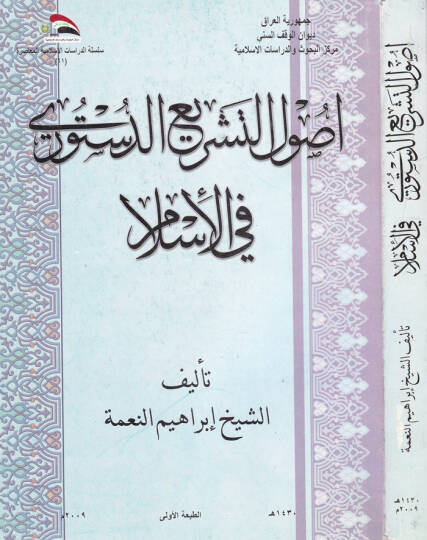 جمهورية العراق
ديوان الوقف السني
مركز البحوث والدراسات الاسلامية
سلسلة الدراسات الاسلامية المعاصرة
(١١)
اصول التشريع الدستوري
في الأسلام
تأليف
الشيخ إبراهيم النعمة
١٤٣٠هـ
الطبعة الأولى
٢٠٠٩م
اصول التشريع الدستوري
في الأسلام
تأليف الشيخ إبراهيم النعمة
١٤٣٠هـ
٢٠٠٩م